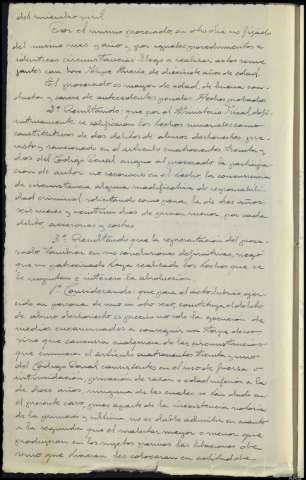 del miembro viril.
Que el mismo procesado, en otro día no fijado
del mismo mes y año y por iguales procedimientos e
idénticas circunstancias llegó a realizar actos seme-
jantes con José de diecisiete años de edad.
El procesado es mayor de edad, de buena con-
ducta y carece de antecedentes penales. Hechos probados
2º Resultando: que por el Ministerio Fiscal, defi-
nitivamente se calificaron los hechos enunciados como
constitutivos de dos delitos de abusos deshonestos, pre-
visto y sancionado en el artículo cuatrocientos treinta y
dos del Código Penal al procesado la participa-
ción de autor no reconociendo en el hecho, la concurrencia
de circunstancia alguna modificativa de responsabili-
dad criminal solicitando como pena, la de dos años
seis meses y veintiún días de prisión menor, por cada
delito, accesorias y costas.
3º Resultando que la representación del proce-
sado también en sus conclusiones definitivas, negó
que su patrocinado haya realizado los hechos que se
le imputan e interesó la absolución.
1º Considerando: que para el acto lúbrico ejer-
cido en persona de uno u otro sexo, constituya el delito
de abuso deshonesto es preciso no solo la ejecución de
medios encaminados a conseguir un torpe deseo
sino que concurra cualquiera de las circunstancias
que enumera el artículo cuatrocientos treinta y uno
del Código Penal consistentes en el uso de fuerza o
intimidación, privación de razón o edad inferior a la
de doce años ninguna de las cuales se han dado en
el presente caso, pues aparte de la inexistencia notoria
de la primera y última, no es dable admitir en cuanto
a la segunda que el malestar mayor o menor que
produzcan en los sujetos pasivos las libaciones de
vino que hacían les colocaran en actitud de